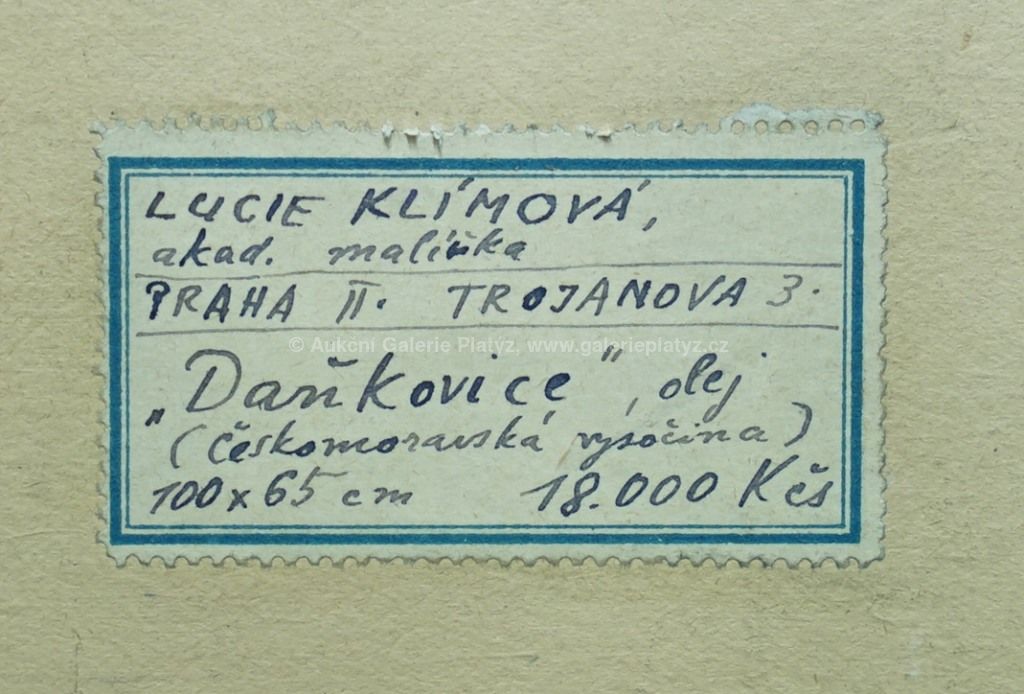 LUCIE KLÍMOVÁ,
akad. malířka
PRAHA II. TROJANOVA 3.
© Aukční Galerie Platýz, www.galerieplatyz.cz
„Daňkovice", olej
(Českomoravská vysočina)
100x65 cm 18.000 Kčs